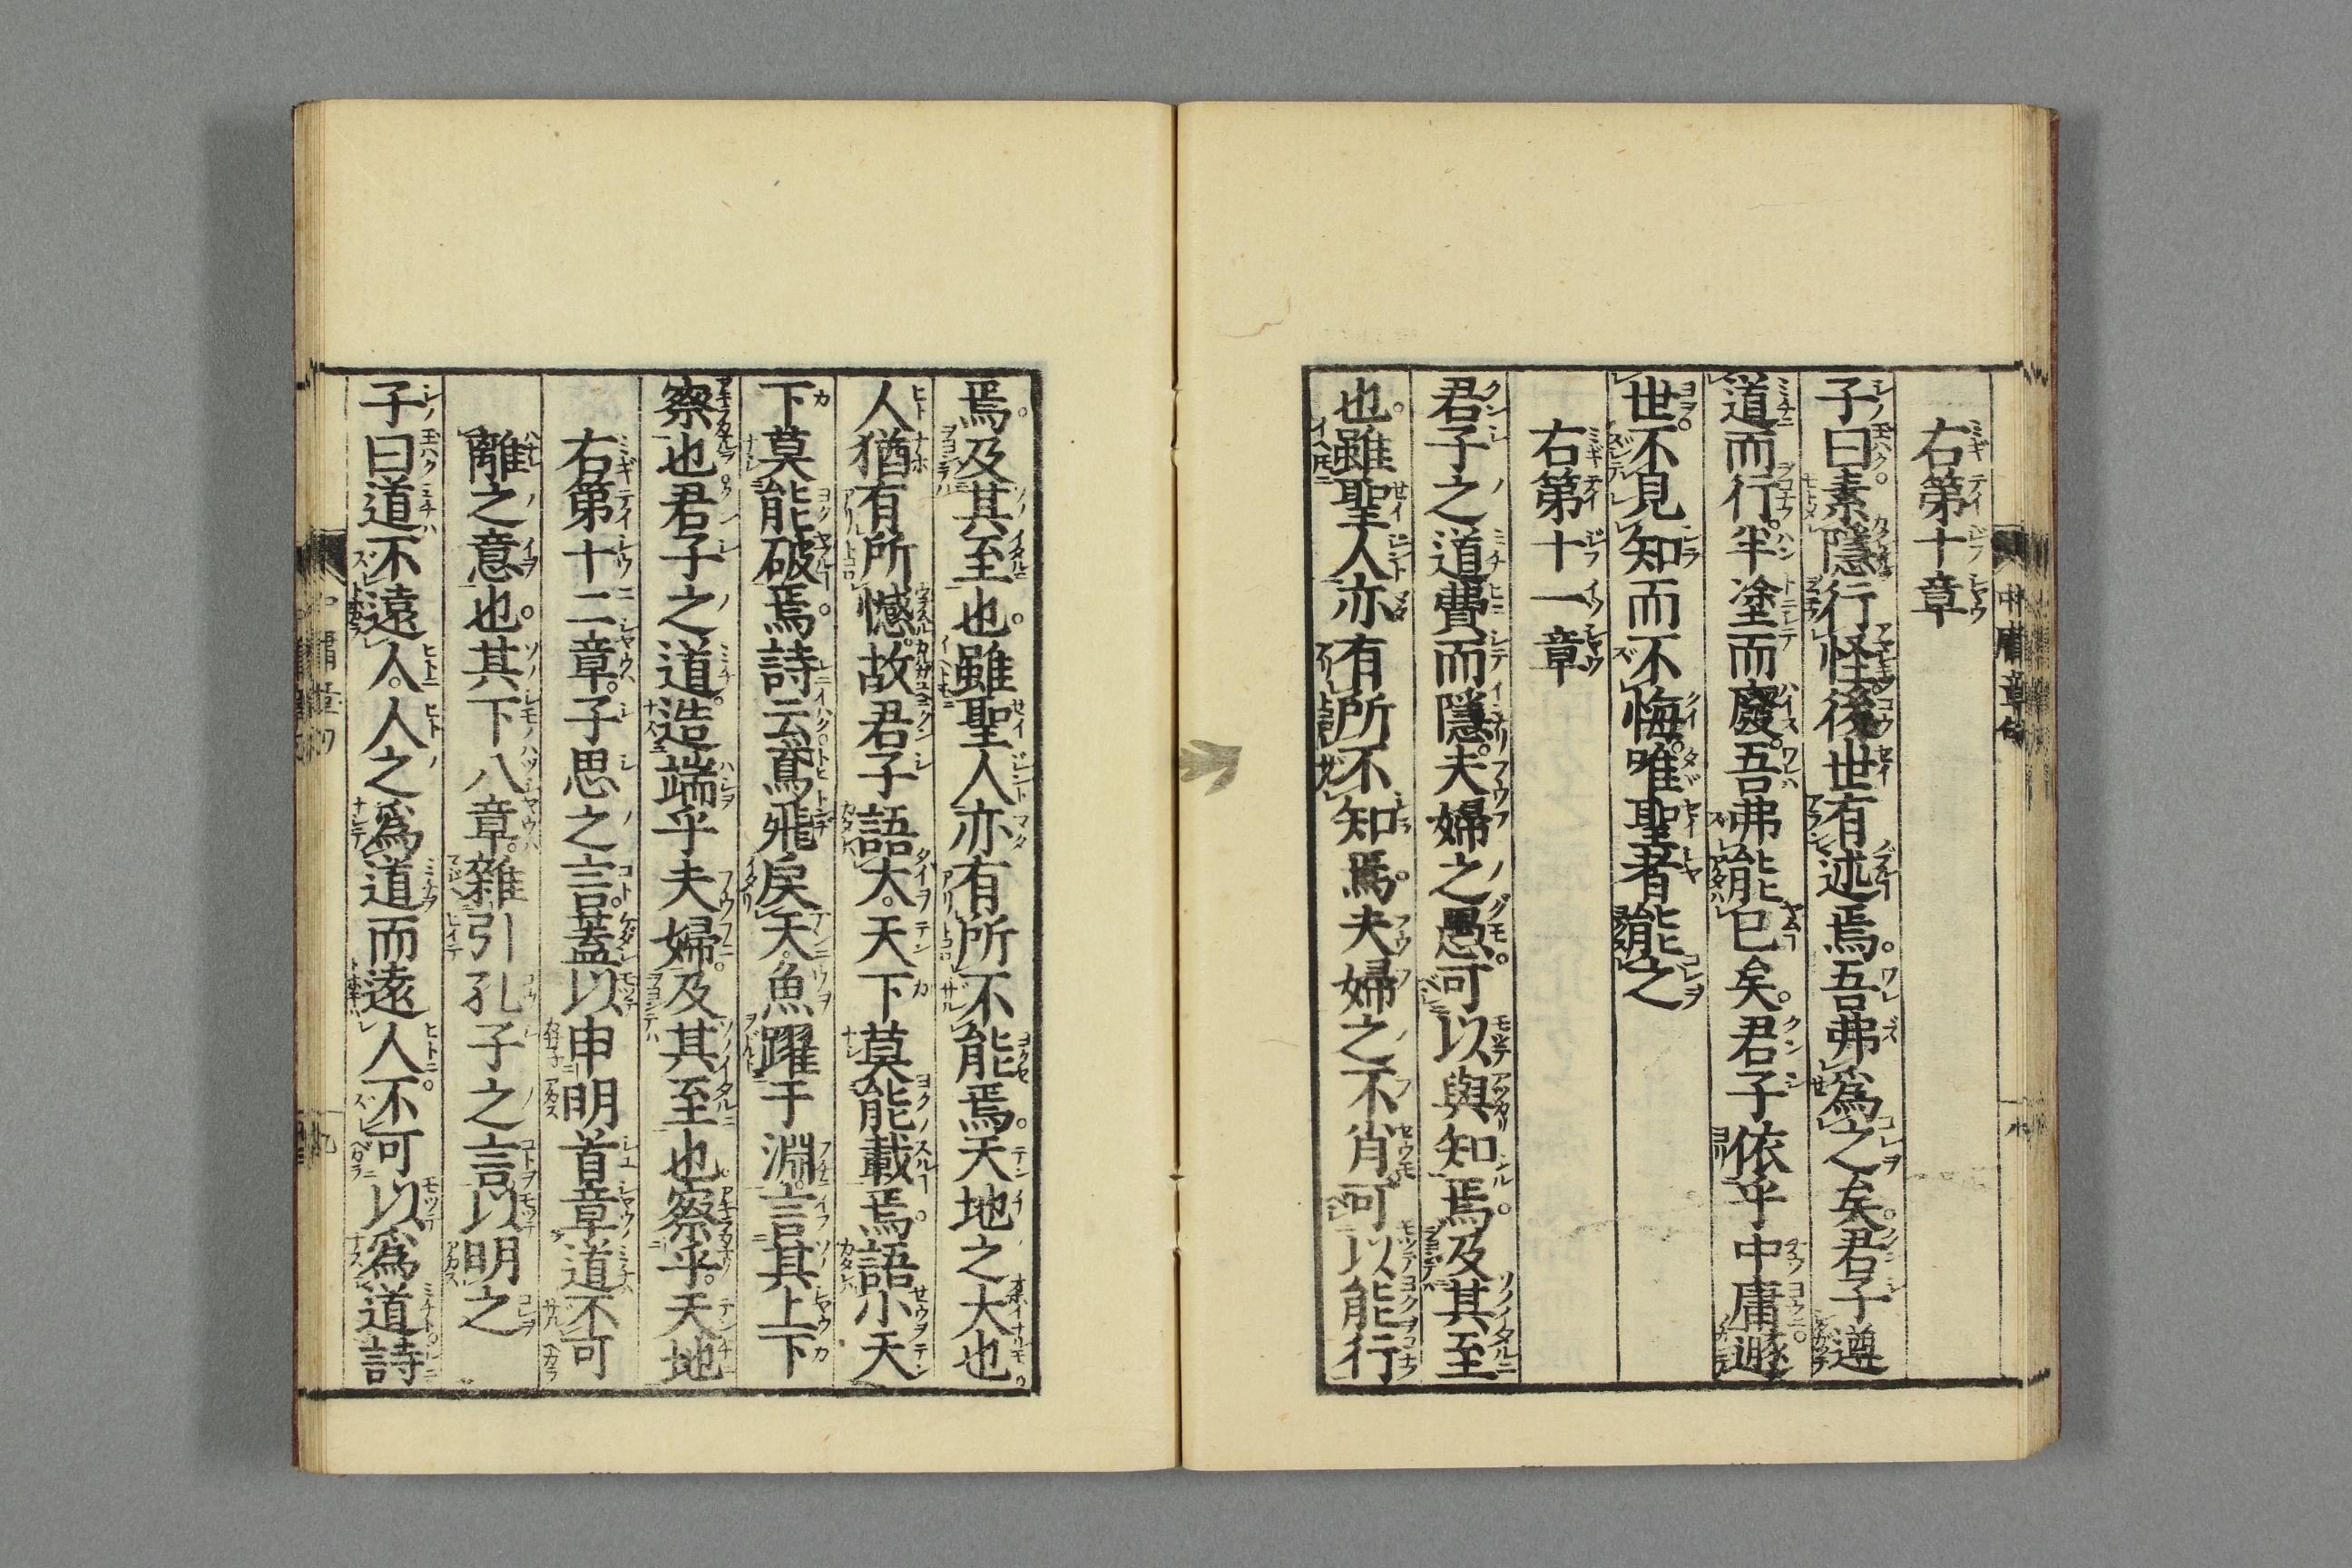 右第十章
子曰素隱行怪後世有述焉。吾弗爲之矣。君子遵
道而行。半塗而廢。吾弗能已矣。君子依乎中庸。遯
世。不見知而不悔。唯聖者能之
右第十一章
君子之道費而隱。夫婦之愚。可以與知焉。及其至
也。雖聖人亦有所不知焉。夫婦之不肖。可以能行
焉。及其至也。雖聖人亦有所不能焉。天地之大也。
人猶有所憾。故君子語大。天下莫能載焉。語小天
下莫能破焉。詩云鳶飛戾天。魚躍于淵。言其上下
察也。君子之道。造端乎夫婦。及其至也。察乎。天地
右第十二章。子思之言。蓋以申明首章道不可
離之意也。其下八章。雜引孔子之言以明之
子曰道不遠人。人之爲道而遠人。不可以爲道詩
中庸章句